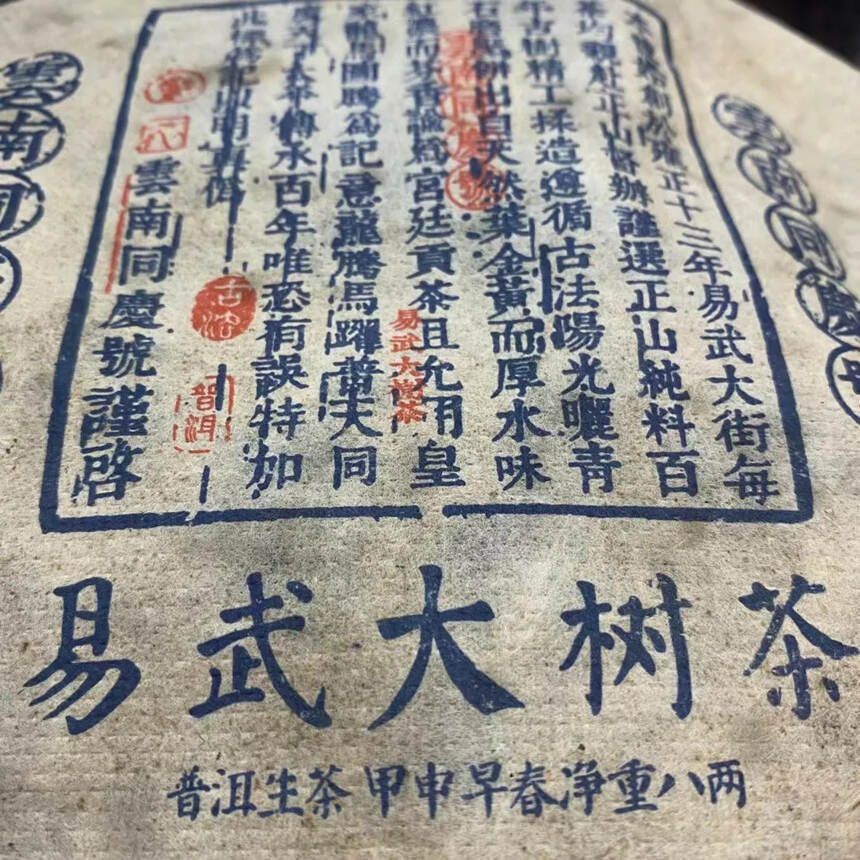 雲南同慶號
易武大街每
正十三年
茶均親赴正山督辦謹選正山純料百
年古樹精工揉造遵循古法陽光曬青
餅出自天然葉金黃而厚水味
紅濃而芬香論爲宮廷貢茶且允用皇
圖騰爲記意龍騰馬躍普天同
太平傳承百年唯恐有誤特加
此票爲記以明真僞
雲南同慶號謹啓
雲南同慶號
易武大樹茶
古法
普洱
雲南同
易武大树茶
普洱生茶 甲申早春净重八两